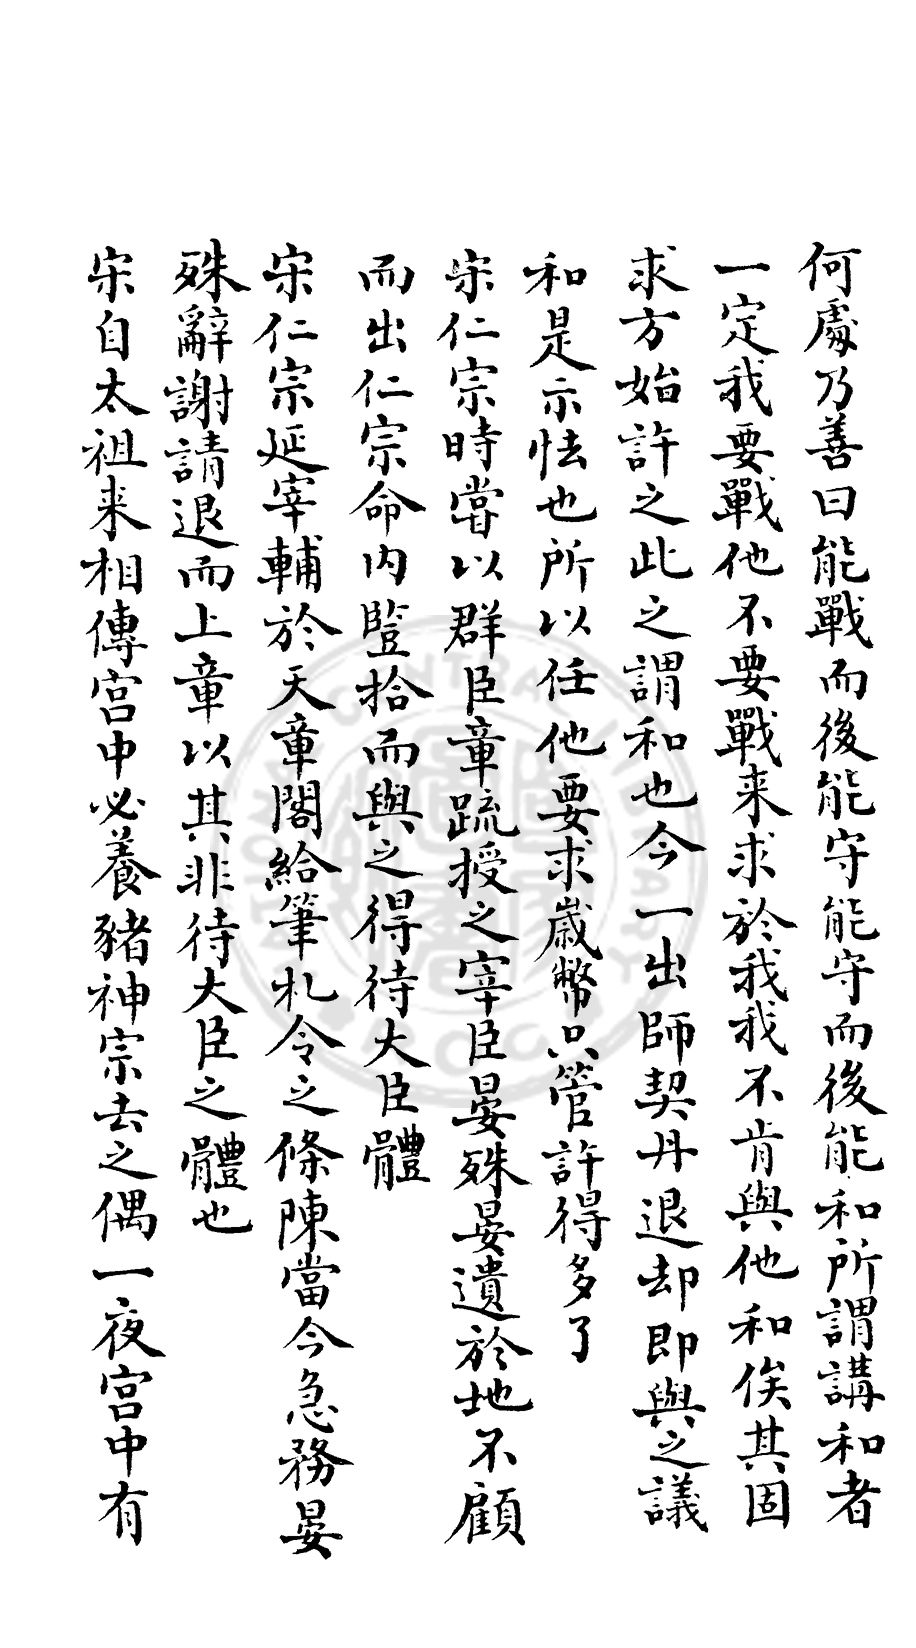 何處乃善曰能戰而後能守能守而後能和所謂講和者
一定我要戰他不要戰来求於我我不肯與他和俟其固
求方始許之此之謂和也今一出師契丹退却即與之議
和是示怯也所以任他要求歲幣只管許得多了
宋仁宗時嘗以群臣章疏授之宰臣晏殊晏遺於地不顧
而出仁宗命内豎拾而與之得待大臣體
宋仁宗延宰輔於天章閣給筆札令之條陳當今急務晏
殊辭謝請退而上章以其非待大臣之體也
宋自太祖来相傳宫中必養豬神宗去之偶一夜宫中有